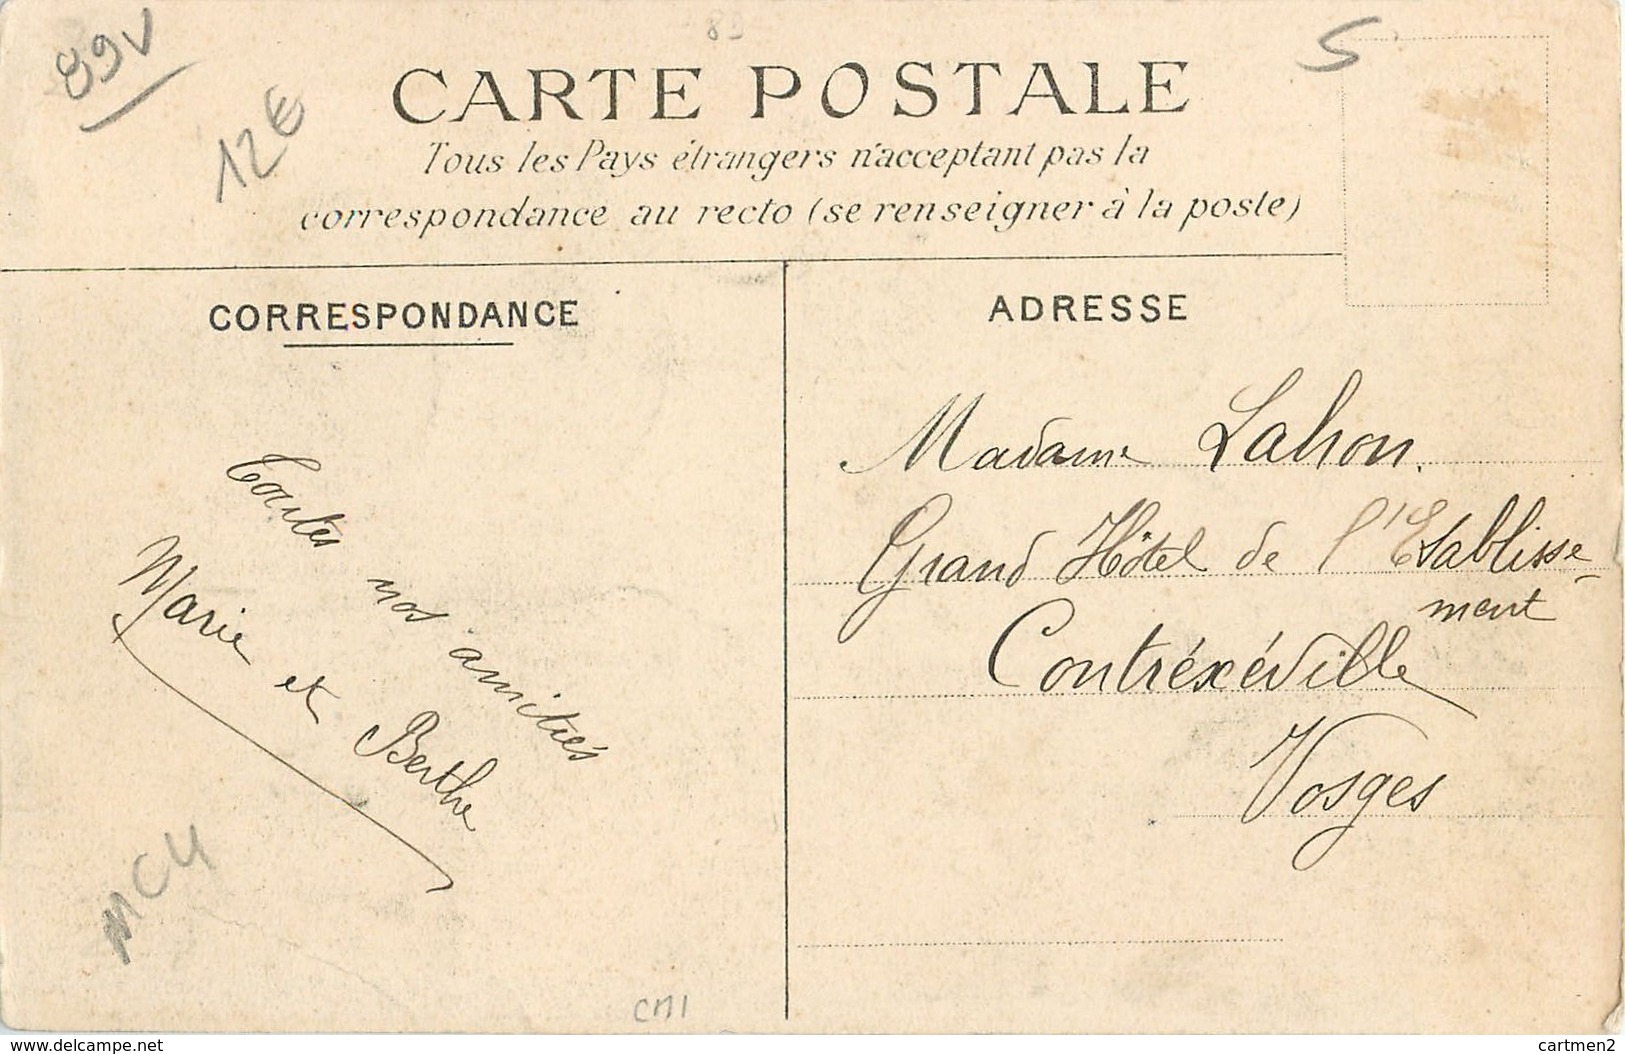 89V
12E
89
S
CARTE POSTALE
Tous les Pays étrangers n'acceptant pas la
correspondance au recto (se renseigner à la poste)
CORRESPONDANCE
Toutes nos amitiés
Marie et Berthe
MC4
CM1
ADRESSE
Madame Lahon.
Grand Hôtel de l'Etablisse-
ment
Contréxéville
Vosges
www.delcampe.net
cartmen2